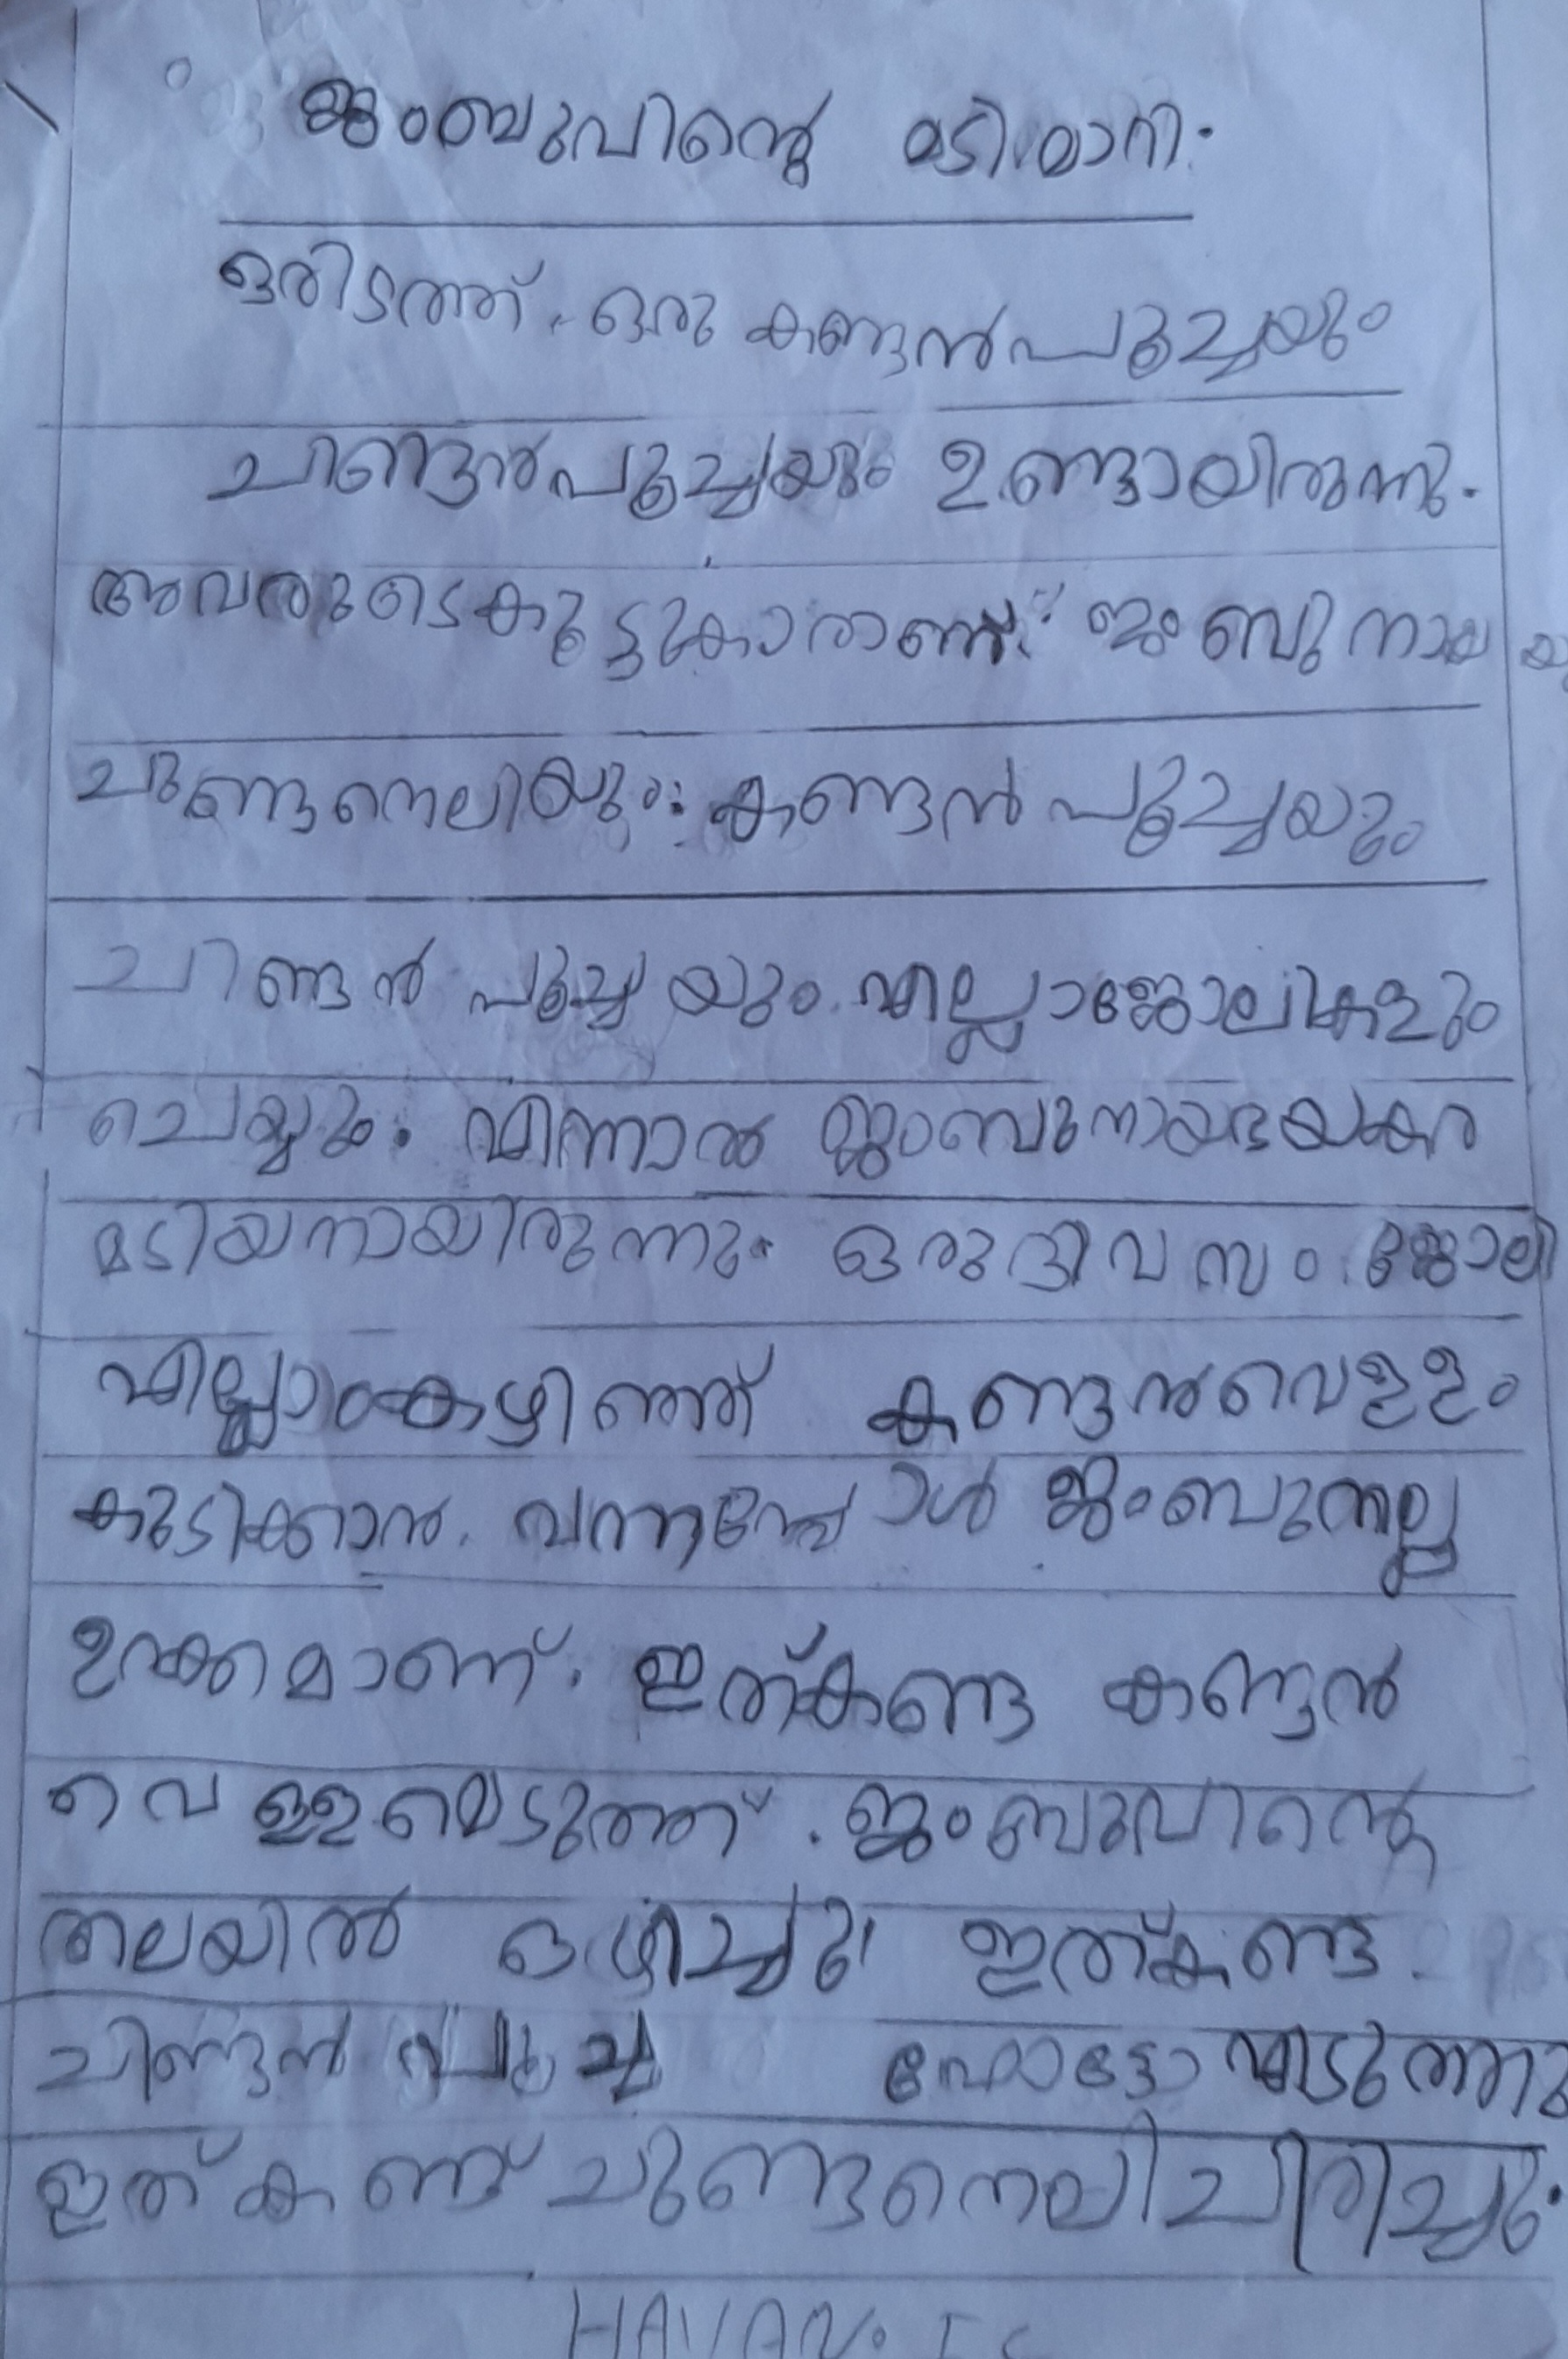 ജംബുവിന്റെ മടിമാറി.
ഒരിടത്ത്. ഒരു കണ്ടൻപൂച്ചയും
ചിണ്ടൻപൂച്ചയും ഉണ്ടായിരുന്നു.
അവരുടെകൂട്ടുകാരാണ് ജംബു നായ യു
ചുണ്ടനെലിയും: കണ്ടൻ പൂച്ചയും
ചിണ്ടൻ പൂച്ച യും. എല്ലാജോലികളും
ചെയ്യും. എന്നാൽ ജംബുനായഭയകര
മടിയനായിരുന്നു. ഒരുദിവസം ജോലി
എല്ലാംകഴിഞ്ഞ് കണ്ടൻവെള്ളം
കുടിക്കാൻ. വന്നപ്പോൾ ജംബുനല്ല
ഉറക്കമാണ്. ഇത്കണ്ട കണ്ടൻ
വെള്ളമെടുത്ത്. ജംബുവിന്റെ
തലയിൽ ഒഴിച്ചു ഇത്കണ്ട.
ചിണ്ടൻ പൂച്ച ഫോട്ടോ എടുത്തു
ഇത് കണ്ട് ചുണ്ടനെലി ചിരിച്ചു.